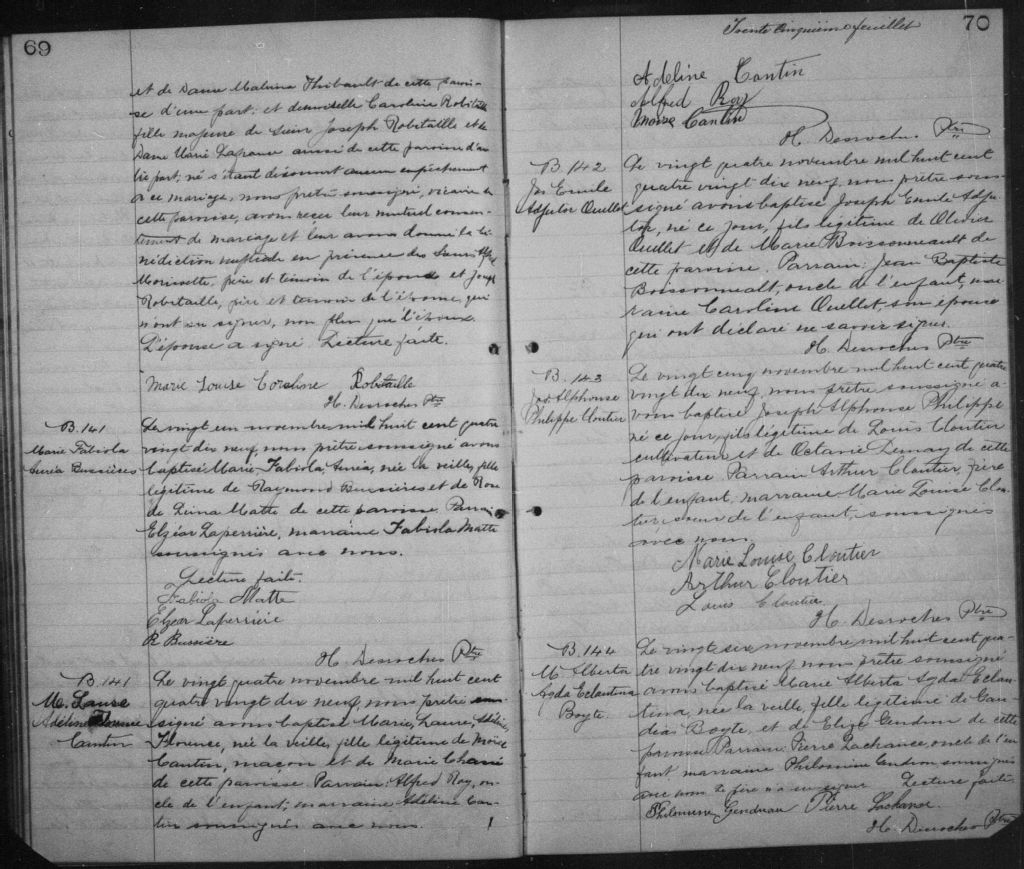 69
et de Dame Malvina Thibault de cette parois-
se d'une part; et demoiselle Caroline Robitaille
fille majeure de Sieur Joseph Robitaille et de
Dame Marie Lapointe aussi de cette paroisse d'au-
tre part; ne s'étant découvert aucun empêchement
à ce mariage, nous prêtre soussigné, vicaire de
cette paroisse, avons reçu leur mutuel consen-
tement de mariage et leur avons donné la bé-
nédiction nuptiale en présence des Sieurs
Morissette, père et témoin de l'époux et Joseph
Robitaille, père et témoin de l'épouse, qui
n'ont su signer, non plus que l'époux.
L'épouse a signé. Lecture faite.
Marie Louise Caroline Robitaille
H. Desroches Ptre
B. 141
Marie Fabiola
Auréa Bussières
Le vingt un novembre mil huit cent quatre
vingt dix neuf, nous prêtre soussigné avons
baptisé Marie, Fabiola, Auréa, née la veille, fille
légitime de Raymond Bussières et de Rose
de Lima Matte de cette paroisse. Parrain
Elzéar Laperrière, marraine Fabiola Matte
soussignés avec nous.
Lecture faite.
Fabiola Matte
Elzear Laperrière
R Bussière
H. Desroches Ptre
B 141
M. Laure
Adéline Florence
Cantin
Le vingt quatre novembre mil huit cent
quatre vingt dix neuf, nous prêtre sous
signé avons baptisé Marie, Laure, Adéline,
Florence, née la veille, fille légitime de Moïse
Cantin, maçon et de Marie
de cette paroisse. Parrain: Alfred Roy, on-
cle de l'enfant; marraine Adéline Can-
tin soussignés avec nous.
Trente cinquième feuillet
70
Adeline Cantin
Alfred Roy
Moise Cantin
H. Desroches Ptre
B. 142
Jos Emile
Adjutor Ouellet
Le vingt quatre novembre mil huit cent
quatre vingt dix neuf, nous prêtre sous-
signé avons baptisé Joseph Emile Adju-
tor, né ce jour, fils légitime de Olivier
Ouellet et de Marie Boissonneault de
cette paroisse. Parrain: Jean Baptiste
Boissonnealt, oncle de l'enfant, mar-
raine Caroline Ouellet, son épouse
qui ont déclaré ne savoir signer.
H. Desroches Ptre
B. 143
Jos Alphonse
Philippe Cloutier
Le vingt cinq novembre mil huit cent quatre
vingt dix neuf, nous prêtre soussigné a-
vons baptisé Joseph Alphonse Philippe
né ce jour, fils légitime de Louis Cloutier
cultivateur et de Octavie Demay de cette
paroisse. Parrain Arthur Cloutier, frère
de l'enfant, marraine Marie Louise Clou-
tier soeur de l'enfant, soussignés
avec nous.
Marie Louise Cloutier
Arthur Cloutier
Louis Cloutier
H. Desroches Ptre
B. 144
M. Alberta
Agda Eclantina
Boyte.
Le vingt six novembre mil huit cent qua-
tre vingt dix neuf nous prêtre soussigné
avons baptisé Marie Alberta Agda Eclan-
tina, née la veille, fille légitime de Gau-
dias Boyte, et de Eliza Gendron de cette
paroisse Parrain: Pierre Lachance, oncle de l'en
fant marraine Philomène Gendron soussignés
avec nous le père n'a su signer. Lecture faite
Philomène Gendreau Pierre Lachance
H. Desroches Ptre